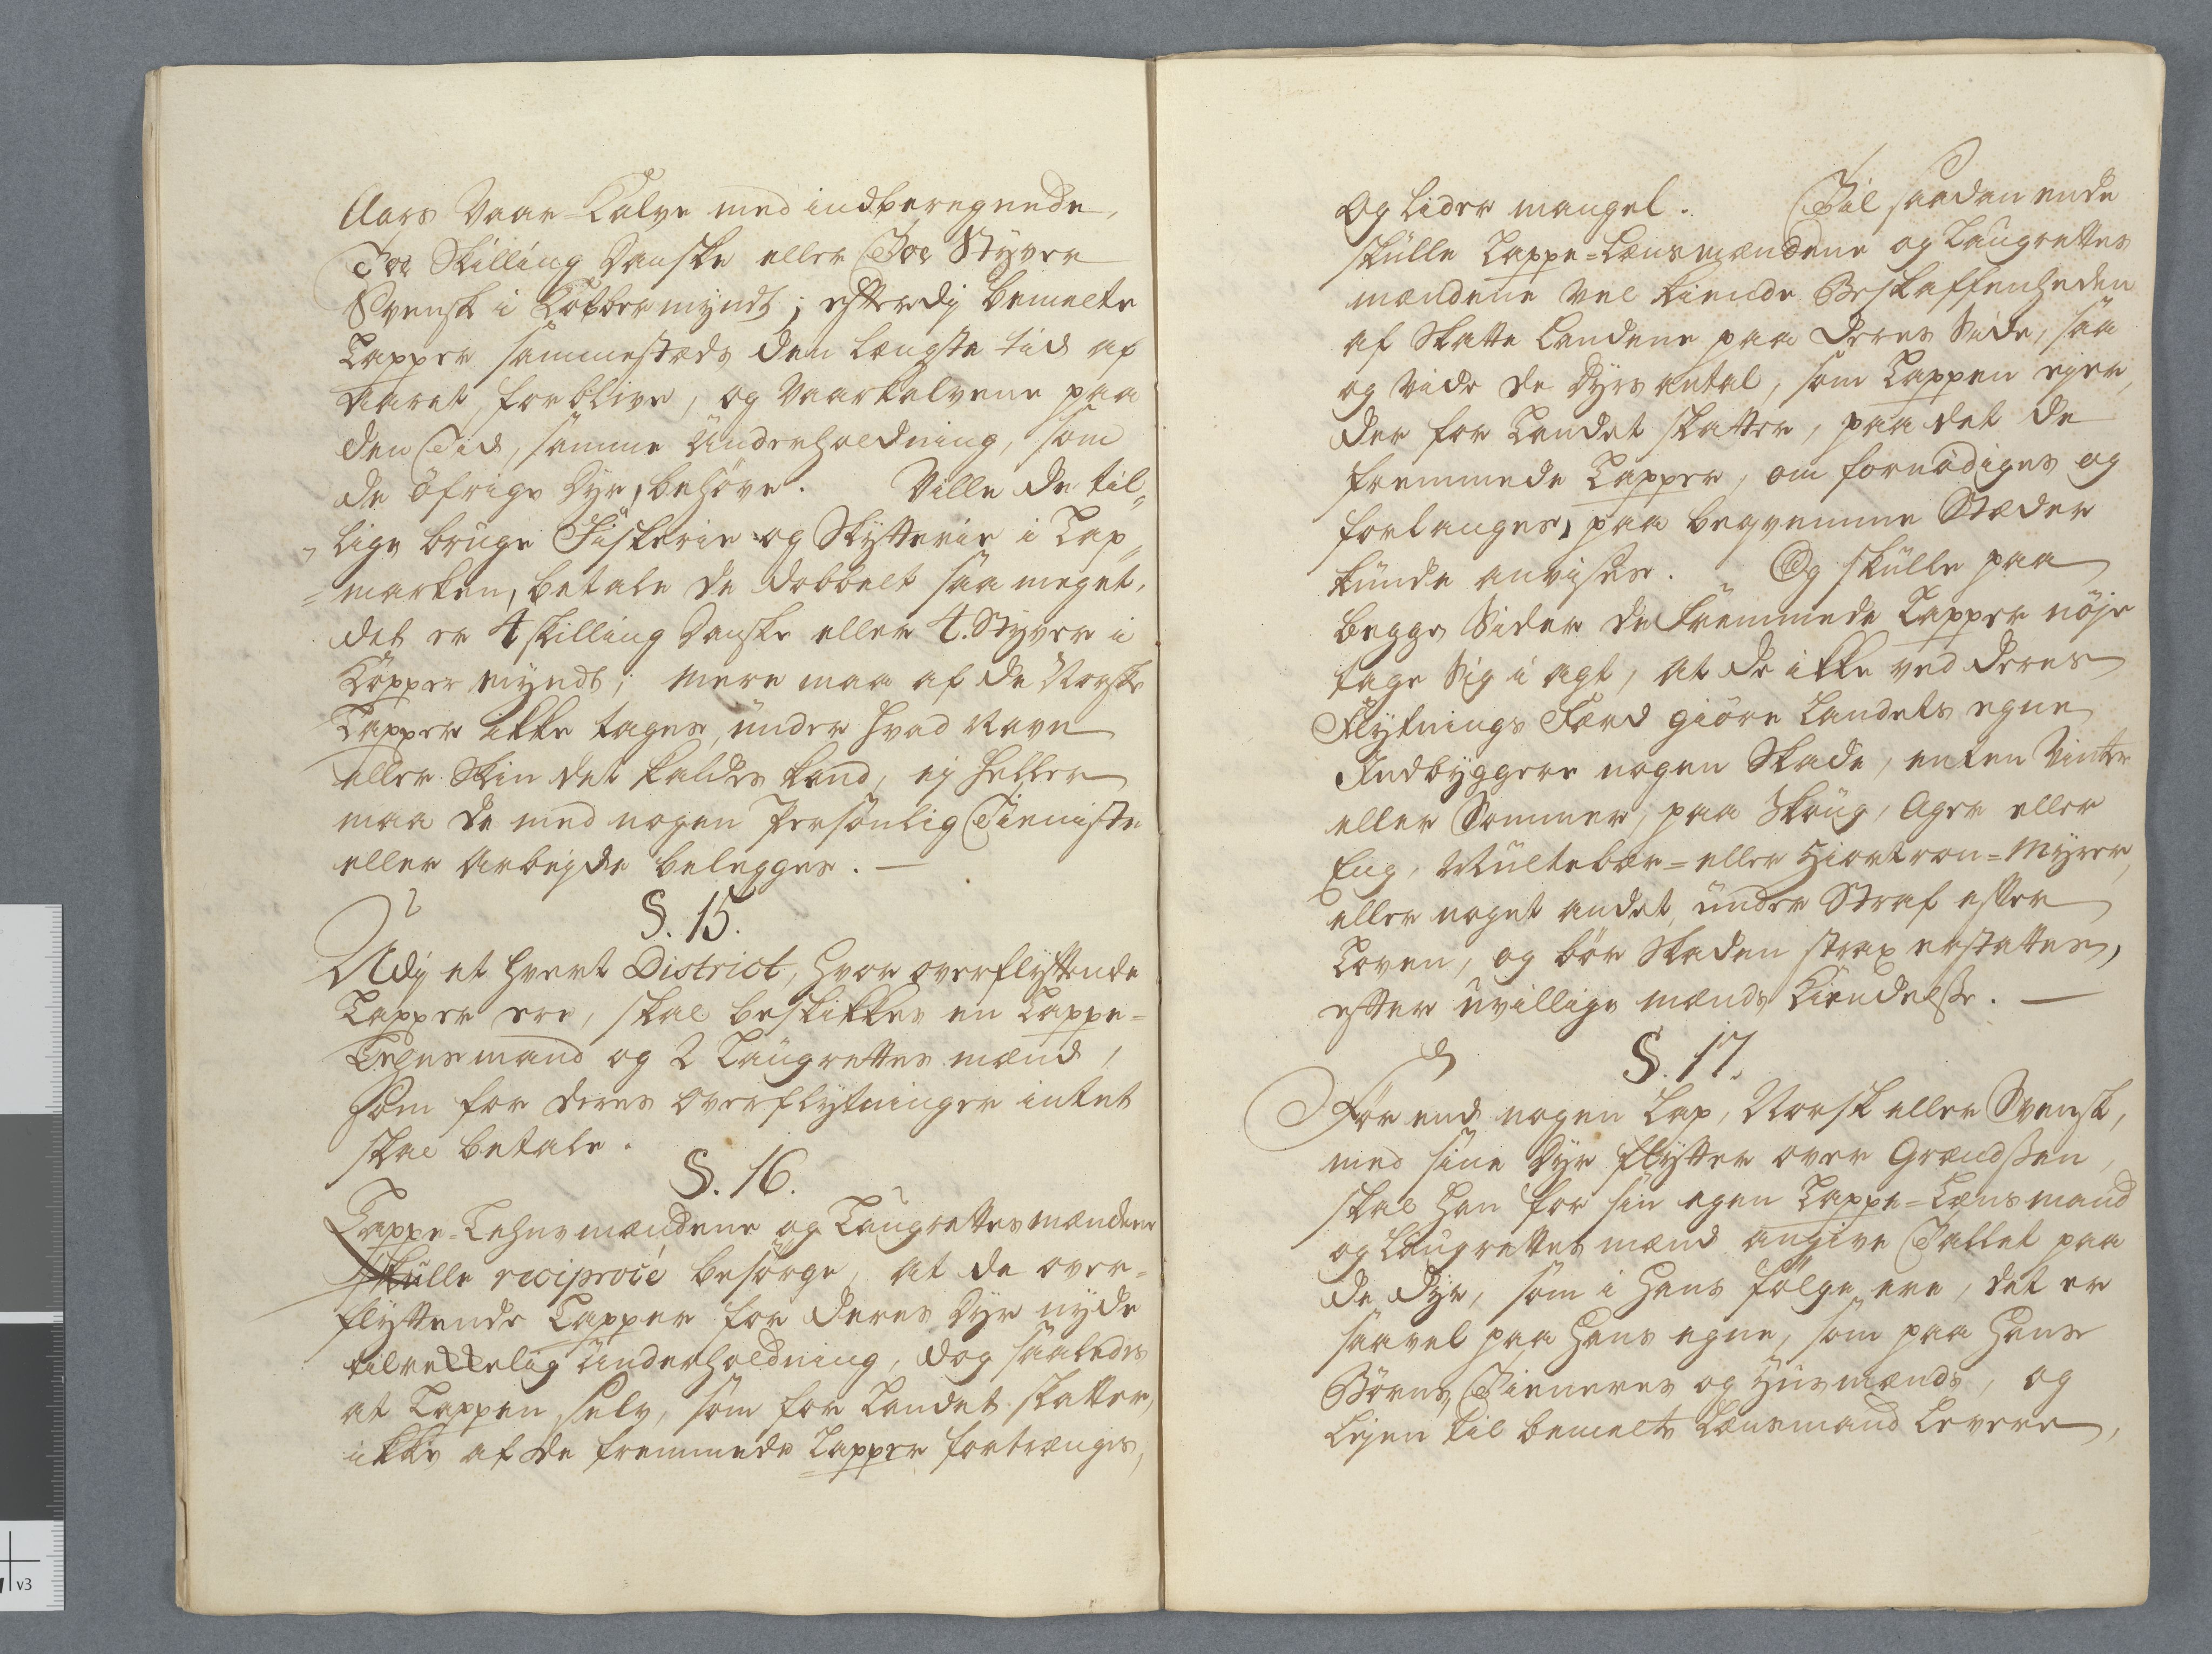 Aars Vaar-Kalve med indberegnede,
Toe Skilling Danske eller Toe Styver
Svensk i Kobbermyndt; efterdj bemelte
Lapper sammestæds den længste tid af
Aaret forblive, og Vaarkalvene paa
den Tid, samme Underholdning, som
de öfrige Dyr, behöve. Ville de til„
„lige bruge Fiskerie og Skytterie i Lap„
=marken, betale de dobbelt saa meget,
det er 4 skilling Danske eller 4. Styver i
Kopper myndt; mere maa af de Norske
Lapper ikke tages, under hvad Navn
eller Skin det kaldes kand, ej heller
maa de med nogen Personlig Tieniste
eller Arbejde belegges. —
§. 15.
Udj et hvert District, hvor overflyttende
Lapper ere, skal beskikkes en Lappe=
Lehnsmand og 2 Laugrettes mænd,
som for deres Overflytninger intet
skal betale.
§. 16.
Lappe-Lehnsmændene og Laugrettesmændene
skulle reciprocè besörge, at de over=
flyttende Lapper for deres Dyr nyde
tilrekkelig Underholdning, dog saaledes
at Lappen selv, som for Landet skatter,
ikke af de fremmede Lapper fortrænges,
og lider mangel. Til saadan ende
skulle Lappe=Lænsmændene og Laugrettes
mændene vel kiende Beskaffenheden
af Skatte Landene paa deres Side, saa
og vide de Dyrs antal, som Lappen ejer,
der for Landet skatter, paa det de
fremmede Lapper, om fornödiges og
forlanges, paa beqvemme Stæder
kunde anvises. Og skulle paa
begge Sider de Fremmede Lapper nöje
tage Sig i agt, at de ikke ved deres
Flytnings Færd giöre Landets egne
Indbyggere nogen Skade, enten Vinter
eller Sommer, paa Skoug, Ager eller
Eng, Multebær= eller Hiortron=Myrer,
eller noget andet, under Straf efter
Loven, og bör Skaden strax erstattes,
efter uvillige mænds Kiendelse. —
§. 17.
For end nogen Lap, Norsk eller Svensk,
med sine Dyr flytter over Grændsen,
skal han for sin egen Lappe=Lænsmand
og Laugrettes mænd angive Tallet paa
de Dyr, som i hans fölge ere, det er
saavel paa hans egne, som paa hans
Börns, Tieneres og Husmænds, og
Lejen til bemelte Lænsmand levere,